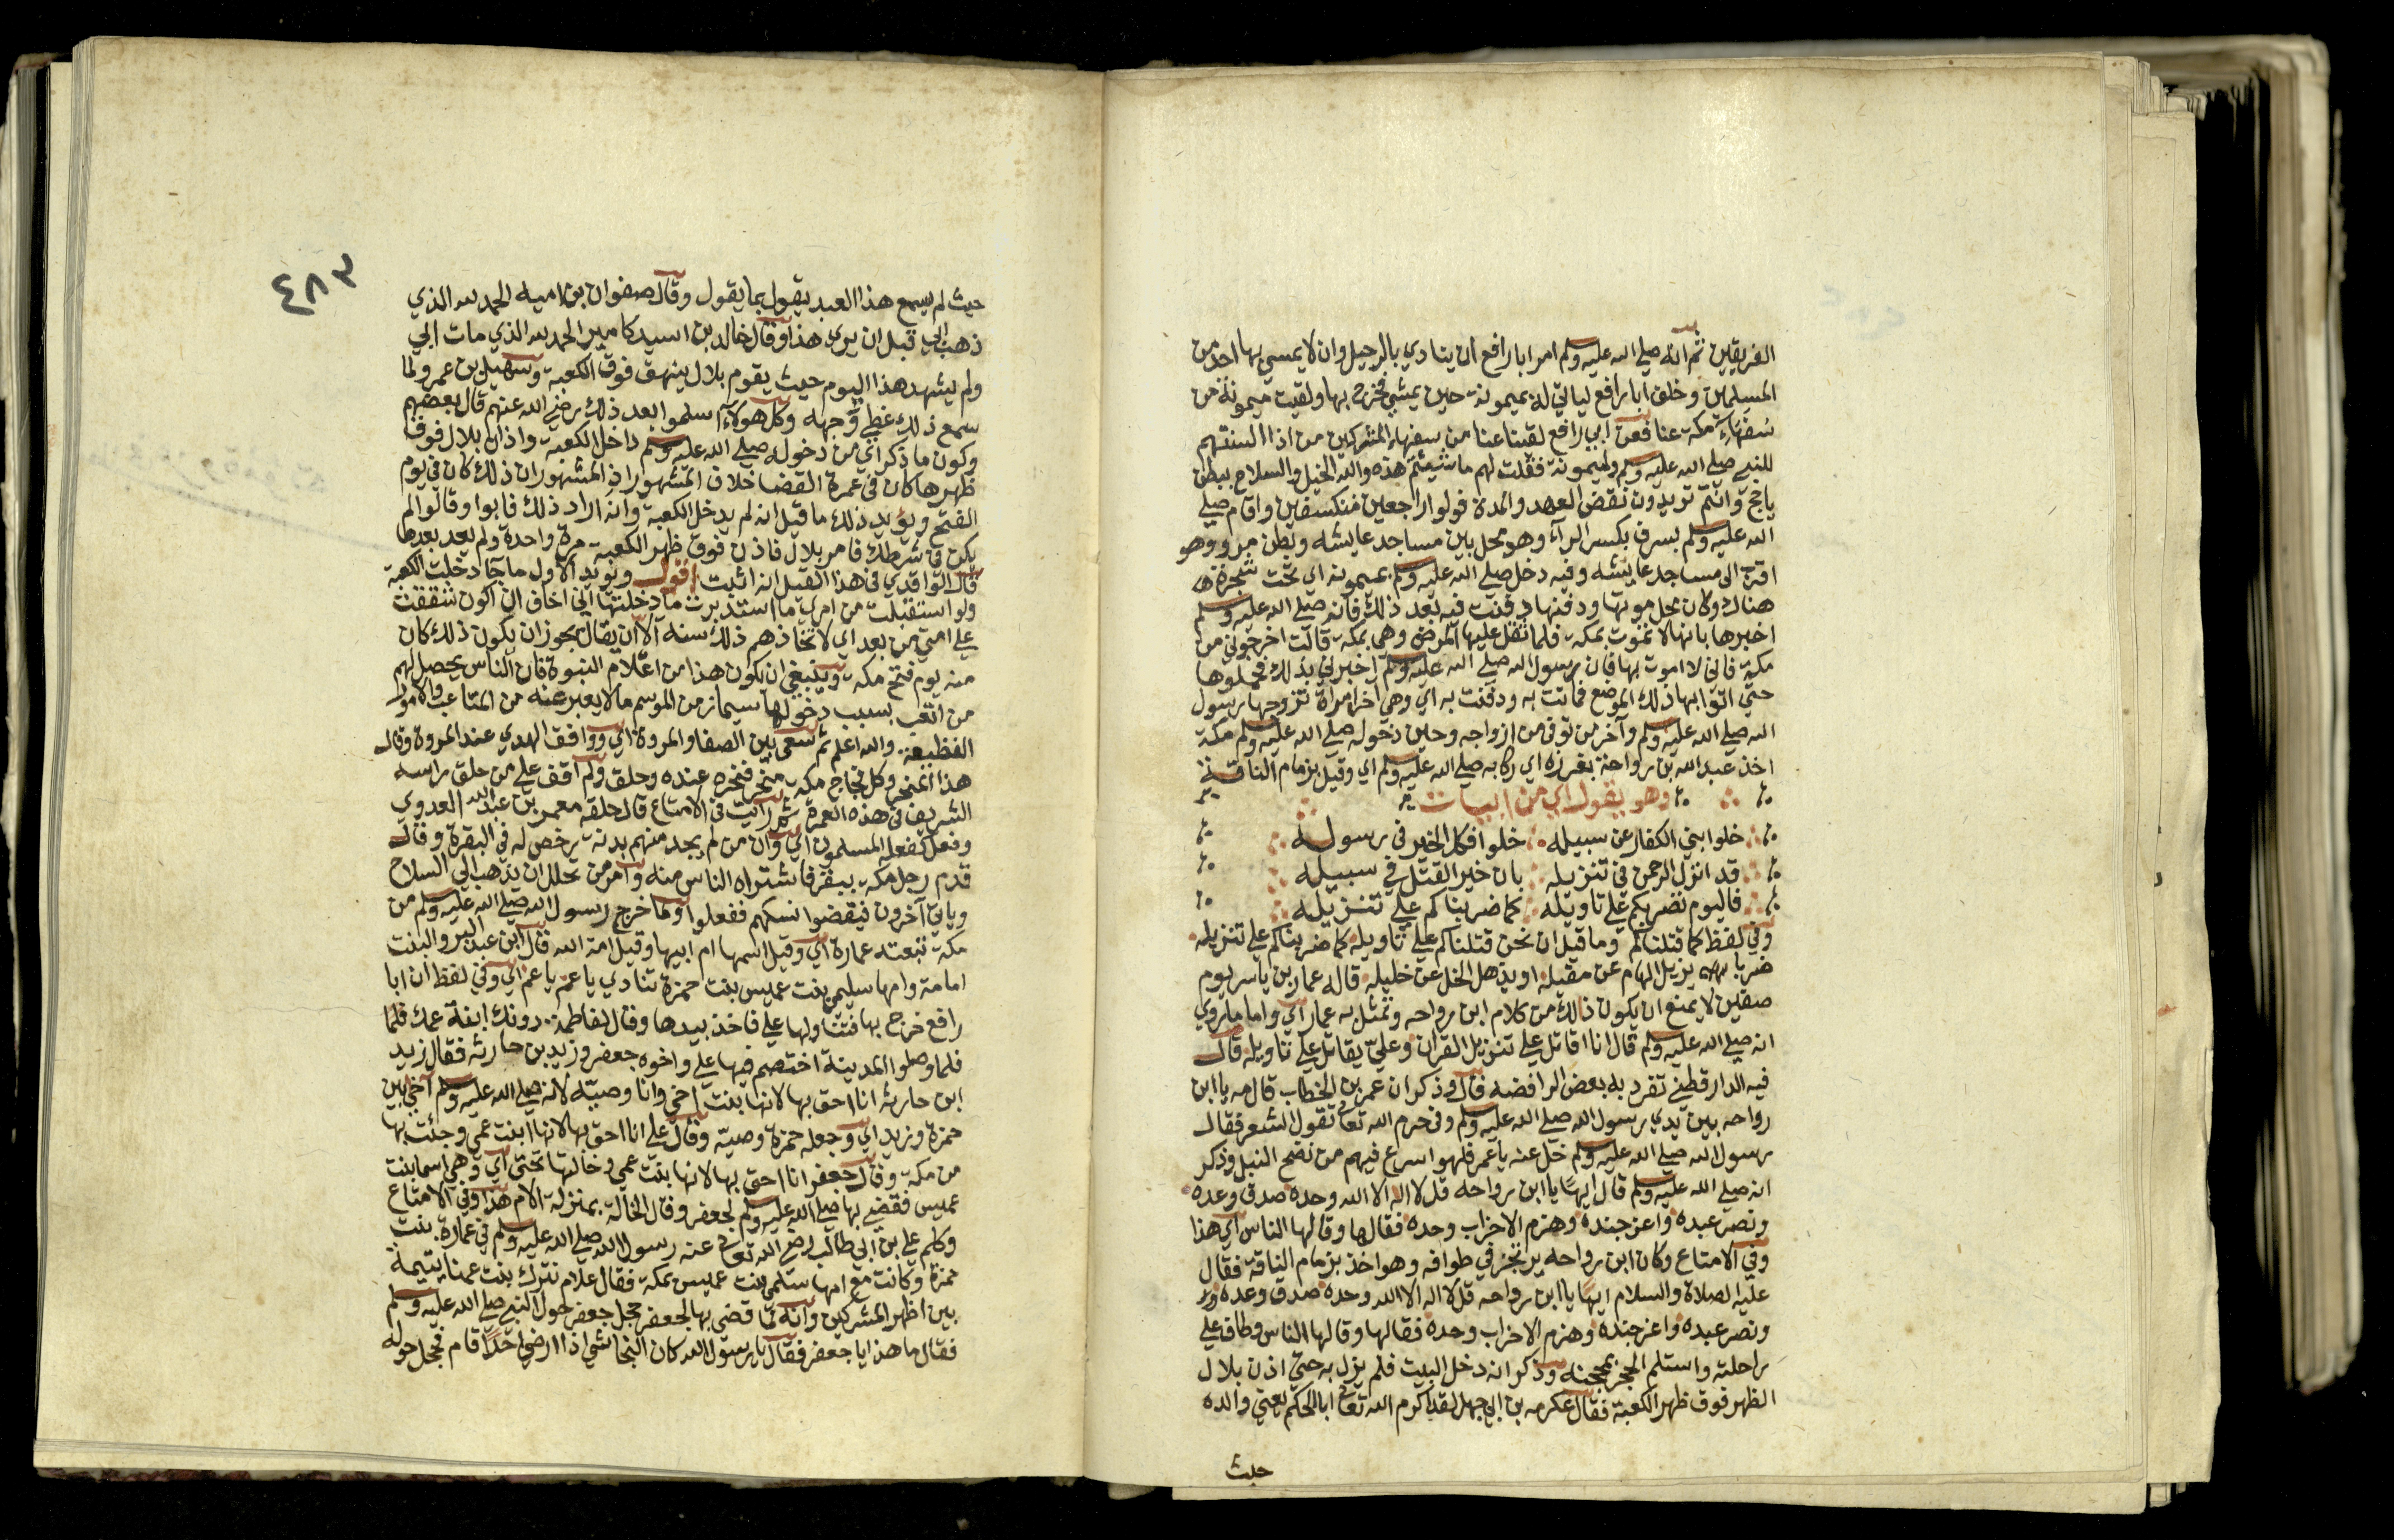 الفريقين ثم انه صلى الله عليه وسلم امر ابا رافع ان ينادي بالرحيل وان لا يمسي بها احد من
المسلمين وخلف ابا رافع لياتي له بميمونة حين يمشي فخرج بها ولقيت ميمونة من
سفهاء مكة عنا فعن ابي رافع لقينا عنا من سفهاء المشركين من اذا السنتهم
للنبي صلى الله عليه وسلم ولميمونة فقلت لهم ما شيئتم هذه والله الخيل والسلاح ببطن
ياجج وانتم تريدون نقض العهد والمدة فولوا راجعين منكسفين واقام صلى
الله عليه وسلم بسرف بكسر الراء وهو محل بين مساجد عايشه وبطن مرو وهو
اقرب الى مساجد عايشه وفيه دخل صلى الله عليه وسلم بميمونه اي تحت شجرة ها
هناك وكان محل موتها ودفنها دفنت فيه بعد ذلك فانه صلى الله عليه وسلم
اخبرها بانها لا تموت بمكة فلما ثقل عليها المرض وهي بمكة قالت اخرجوني من
مكة فانى لا اموت بها فان رسول الله صلى الله عليه وسلم اخبرني بذلك فحملوها
حتى اتوا بها ذلك الموضع فماتت به ودفنت به اي وهي اخر امراة تزوجها رسول
الله صلى الله عليه وسلم وآخر من توفى من ازواجه وحين دخوله صلى الله عليه وسلم مكة
اخذ عبد الله بن رواحة بغرزه اي ركابه صلى الله عليه وسلم اي وقيل بزمام الناقة
وهو يقول اي من ابيات
خلوا بني الكفار عن سبيله خلوا فكل الخير في رسوله
قد انزل الرحمن في تنزيله بان خير القتل في سبيله
فاليوم نضربكم على تاويله كما ضربناكم على تنزيله
وفي لفظ كما قتلناكم وما قيل ان نحن قتلناكم على تاويله كما ضربناكم على تنزيله
ضربا يزيل الهام عن مقيله او يذهل الخل عن خليله قاله عمار بن ياسر يوم
صفين لا يمنع ان يكون ذلك من كلام ابن رواحه وتمثل به عمار اي واما ما روي
انه صلى الله عليه وسلم قال انا اقاتل على تنزيل القران وعلي يقاتل على تاويله قال
فيه الدارقطني تفرد به بعض الرافضه قال وذكر ان عمر بن الخطاب قال مه يا ابن
رواحه بين يدي رسول الله صلى الله عليه وسلم وفي حرم الله تعالى تقول الشعر فقال
رسول الله صلى الله عليه وسلم خل عنه يا عمر فلهو اسرع فيهم من نضح النبل وذكر
انه صلى الله عليه وسلم قال ايها يا ابن رواحه قل لا اله الا الله وحده صدق وعده
ونصر عبده واعز جنده وهزم الاحزاب وحده فقالها وقالها الناس اي هذا
وفي الامتاع وكان ابن رواحه يرتجز في طوافه وهو اخذ بزمام الناقة فقال
عليه الصلاة والسلام ايها يا ابن رواحه قل لا اله الا الله وحده صدق وعده
ونصر عبده واعز جنده وهزم الاحزاب وحده فقالها وقالها الناس وطاف على
راحلته واستلم الحجر بمحجنه وذكر انه دخل البيت فلم يزل به حتى اذن بلال
الظهر فوق ظهر الكعبة فقال عكرمه بن ابي جهل لقد اكرم الله تعالى ابا الحكم يعني والده
حيث
٤٨٣
حيث لم يسمع هذا العبد يقول بما يقول وقال صفوان بن اميه الحمد لله الذي
ذهب ابي قبل ان يرى هذا وقال خالد بن اسيد كامير الحمد لله الذي مات ابي
ولم يشهد هذا اليوم حيث يقوم بلال ينهق فوق الكعبة وسهيل بن عمرو لما
سمع ذلك غطى وجهه وكل هولاء اسلموا بعد ذلك رضي الله عنهم قال بعضهم
وكون ما ذكر اي من دخوله صلى الله عليه وسلم داخل الكعبة واذان بلال فوق
ظهرها كان في عمرة القضا خلاف المشهور اذ المشهور ان ذلك كان في يوم
الفتح ويؤيد ذلك ما قيل انه لم يدخل الكعبة وانه اراد ذلك فابوا وقالوا لم
يكن في شرطك فامر بلال فاذن فوق ظهر الكعبة مرة واحدة ولم يعد بعدها
قال الواقدي في هذا القيل انه اثبت اقول ويويد الاول ما جا دخلت الكعبة
ولو استقبلت من امري ما استدبرت ما دخلتها اني اخاف ان اكون شققت
على امتي من بعدي اي لاتخاذهم ذلك سنة الا ان يقال يجوز ان يكون ذلك كان
منه يوم فتح مكة وينبغي ان يكون هذا من اعلام النبوة فان الناس يحصل لهم
من التعب بسبب دخولها سيما زمن الموسم ما لا يعبر عنه من المتاعب والامور
الفظيعة والله اعلم ثم سعى بين الصفا والمروة اي ووافق الهدي عند المروة وقال
هذا المنحر وكل فجاج مكة منحر فنحره عنده وحلق ولم اقف على من حلق راسه
الشريف في هذه العمرة ثم رايت في الامتاع قال حلقه معمر بن عبد الله العدوي
وفعل كفعله المسلمون اي وان من لم يجد منهم بدنة رخص له في البقرة وقال
قدم رجل مكة ببقر فاشتراه الناس منه وامر من تحلل ان يذهب الى السلاح
وياتي آخرون فيقضوا نسكهم ففعلوا ولما خرج رسول الله صلى الله عليه وسلم من
مكة تبعته عمارة اي وقيل اسمها ام ابيها وقيل امة الله قال ابن عبد البر والبنت
امامة وامها سليمى بنت عميس بنت حمزة تنادي يا عم يا عم اي وفي لفظ ان ابا
رافع خرج بها فتناولها علي فاخذ بيدها وقال لفاطمة دونك ابنة عمك فلما
فلما وصلوا المدينة اختصم فيها علي واخوه جعفر وزيد بن حارثه فقال زيد
ابن حارثه انا احق بها لانها بنت اخي وانا وصيه لانه صلى الله عليه وسلم آخى بين
حمزة وزيد اي وجعله حمزة وصيه وقال علي انا احق بها لانها ابنت عمي وجئت بها
من مكة وقال جعفر انا احق بها لانها بنت عمي وخالتها تحتي اي وهي اسما بنت
عميس فقضى بها صلى الله عليه وسلم لجعفر وقال الخالة بمنزلة الام هذا وفي الامتاع
وكلم علي بن ابي طالب رضي الله تعالى عنه رسول الله صلى الله عليه وسلم في عمارة بنت
حمزة وكانت مع امها سلمى بنت عميس بمكة فقال علام نترك بنت عمنا يتيمة
بين اظهر المشركين وانه لما قضى بها لجعفر حجل جعفر حول النبي صلى الله عليه وسلم
فقال ما هذا يا جعفر فقال يا رسول الله كان النجاشي اذا ارضى احدا قام فحجل حوله